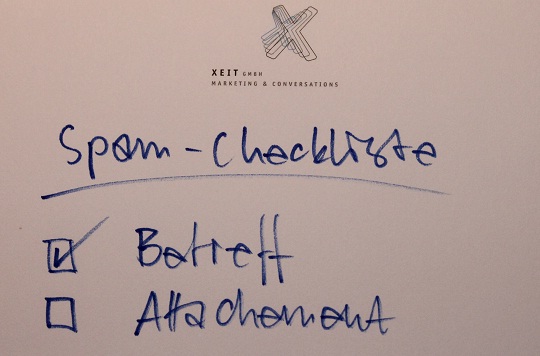 XEIT GMBH
MARKETING & CONVERSATIONS
Spam-Checkliste
Betreff
Attachement